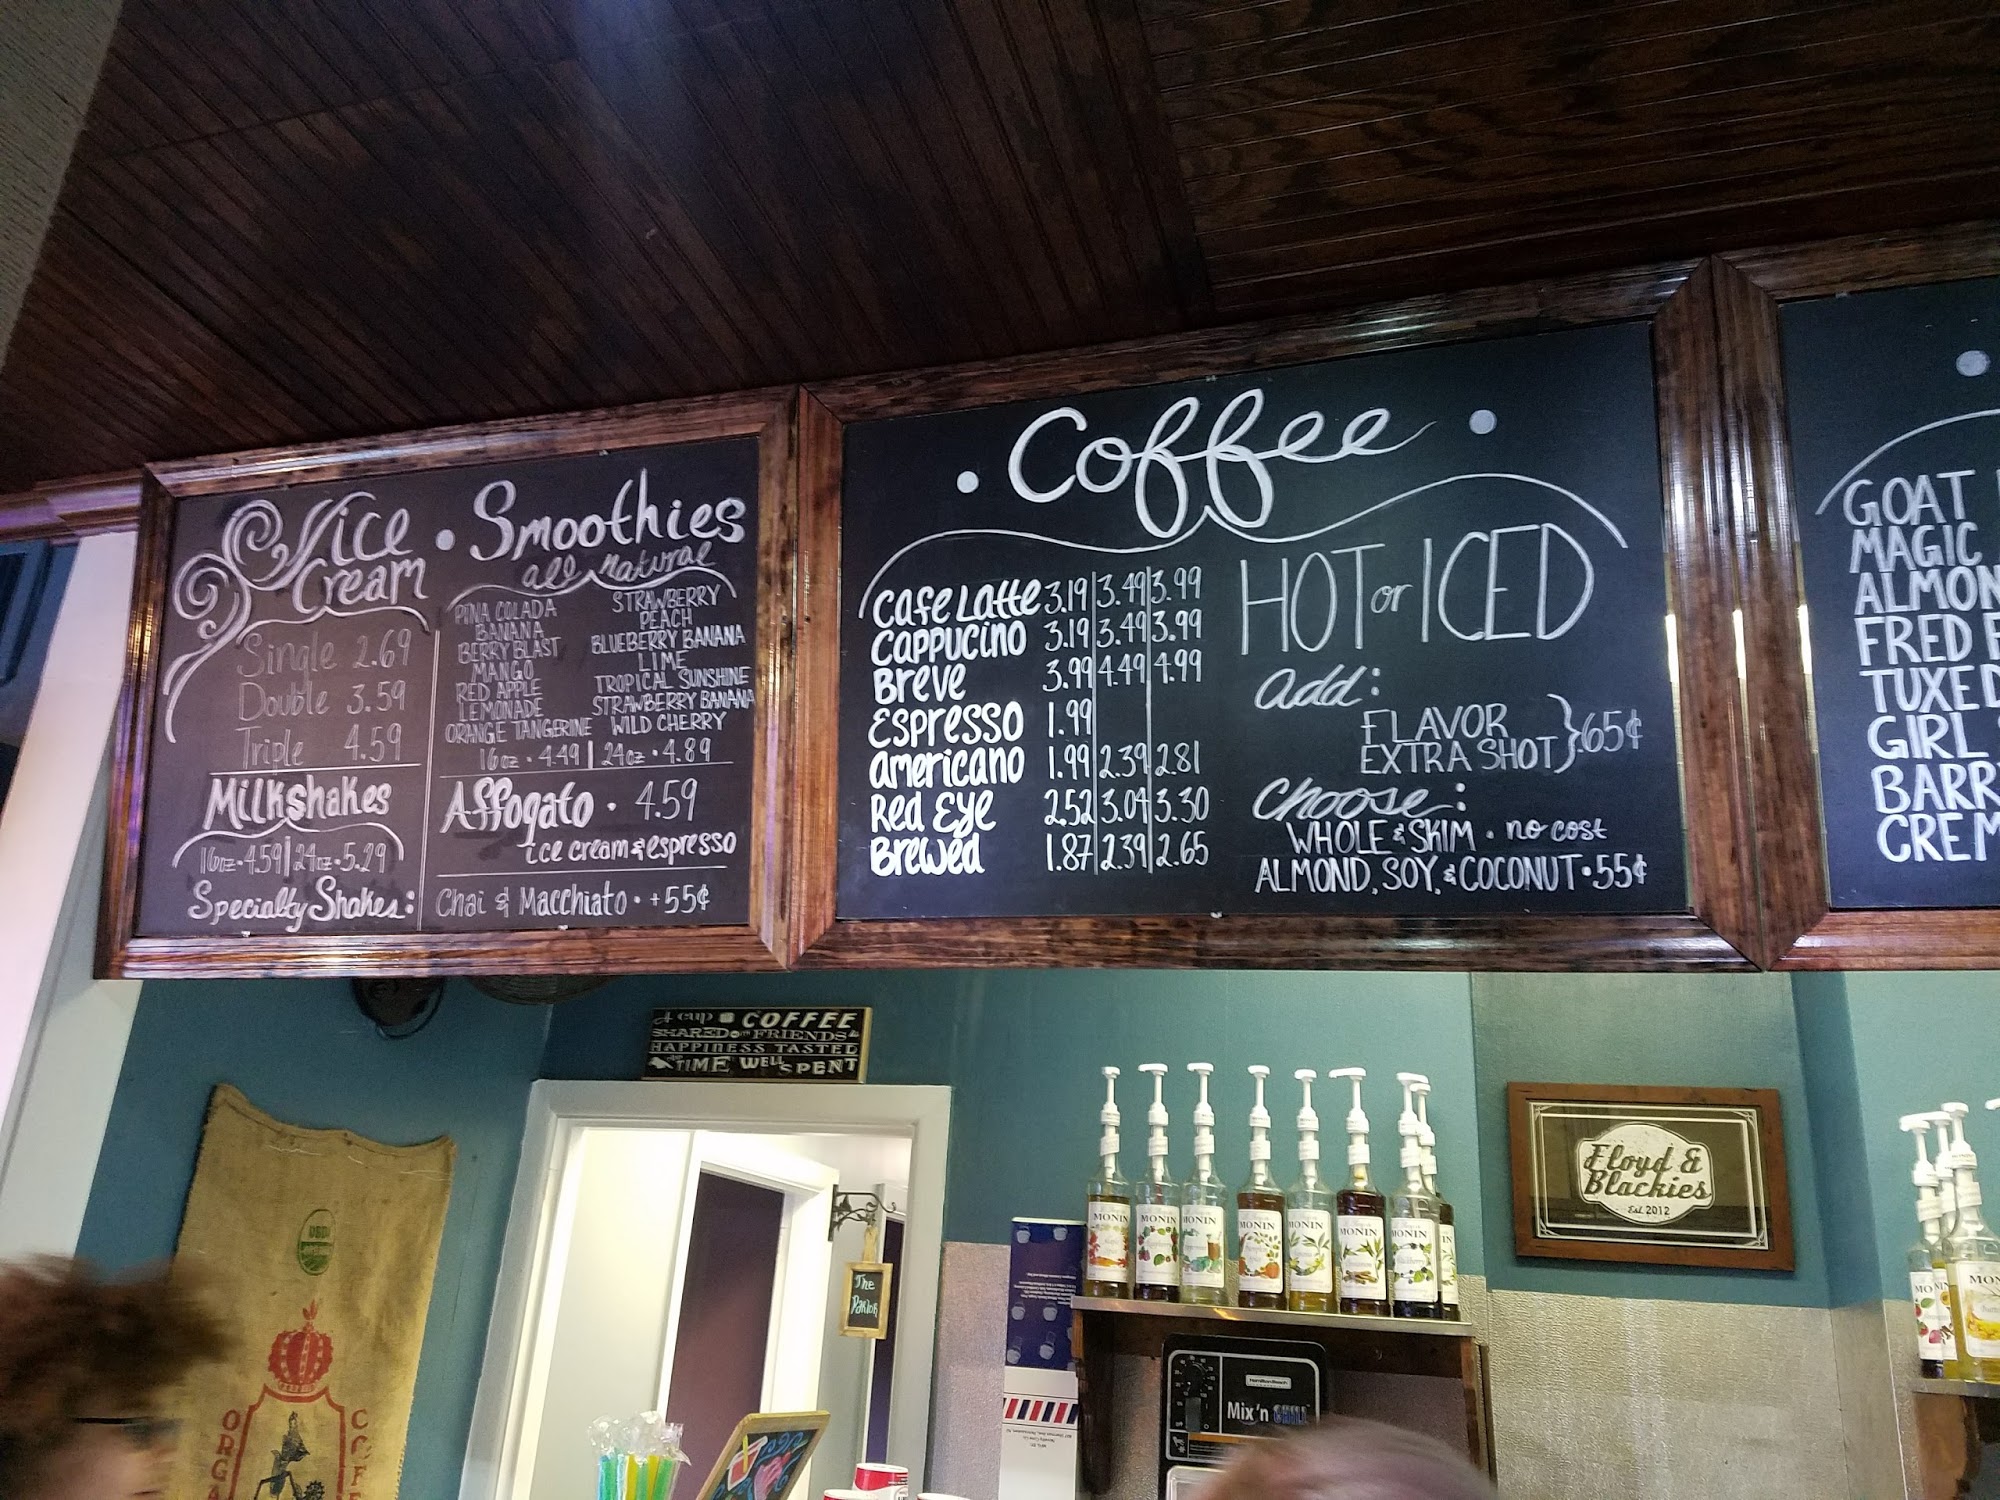 Ice
Cream
Single 2.69
Double 3.59
Triple 4.59
Milkshakes
16oz • 4.59 | 24oz • 5.29
Specialty Shakes:
• Smoothies
all natural
PINA COLADA
BANANA
BERRY BLAST
MANGO
RED APPLE
LEMONADE
ORANGE TANGERINE
STRAWBERRY
PEACH
BLUEBERRY BANANA
LIME
TROPICAL SUNSHINE
STRAWBERRY BANANA
WILD CHERRY
16oz • 4.49 | 24oz • 4.89
Affogato • 4.59
ice cream & espresso
Chai & Macchiato • +55¢
• Coffee •
Cafe Latte 3.19 3.49 3.99
Cappucino 3.19 3.49 3.99
Breve 3.99 4.49 4.99
Espresso 1.99
americano 1.99 2.39 2.81
Red Eye 2.52 3.04 3.30
Brewed 1.87 2.39 2.65
HOT or ICED
add:
FLAVOR
EXTRA SHOT } .65¢
Choose:
WHOLE & SKIM • no cost
ALMOND, SOY, & COCONUT • 55¢
GOAT
MAGIC
ALMON
FRED
TUXED
GIRL
BARR
CREM
A cup of COFFEE
SHARED with FRIENDS is
HAPPINESS TASTED
and TIME WELL SPENT
The
Parlor
MONIN
MONIN
MONIN
MONIN
MONIN
MONIN
MONIN
Floyd &
Blackies
Est. 2012
Hamilton Beach
Mix 'n CHILL
USDA
ORGA
COFF
MON